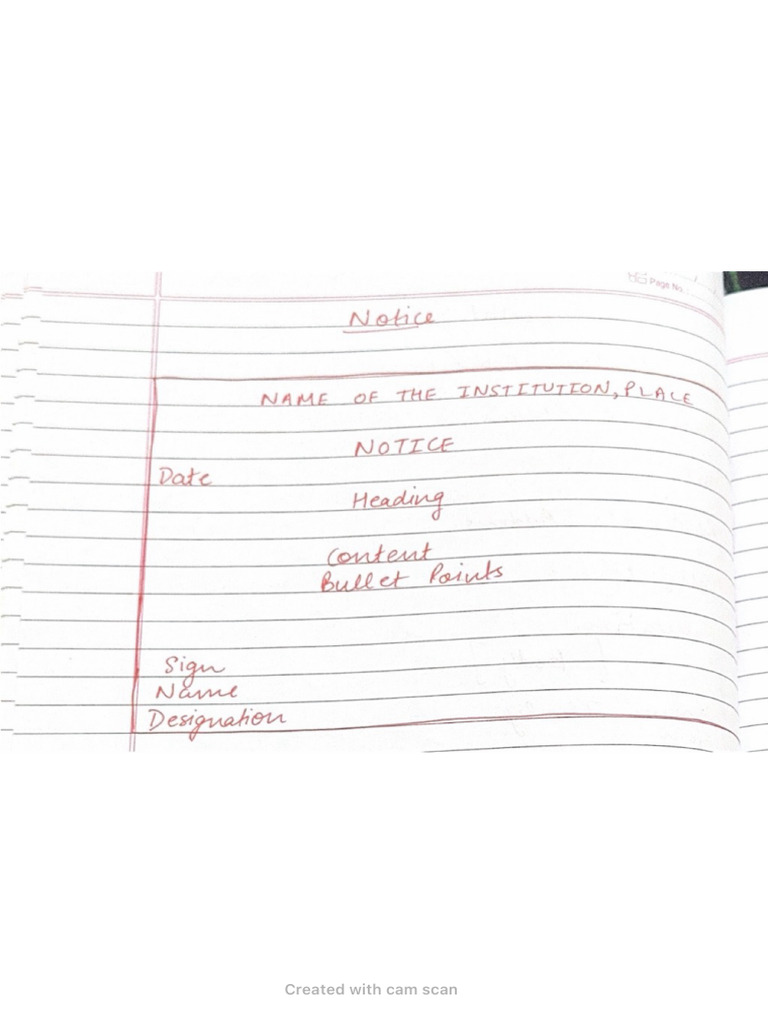 Page No.
Notice
NAME OF THE INSTITUTION, PLACE
NOTICE
Date
Heading
Content
Bullet Points
Sign
Name
Designation
Created with cam scan